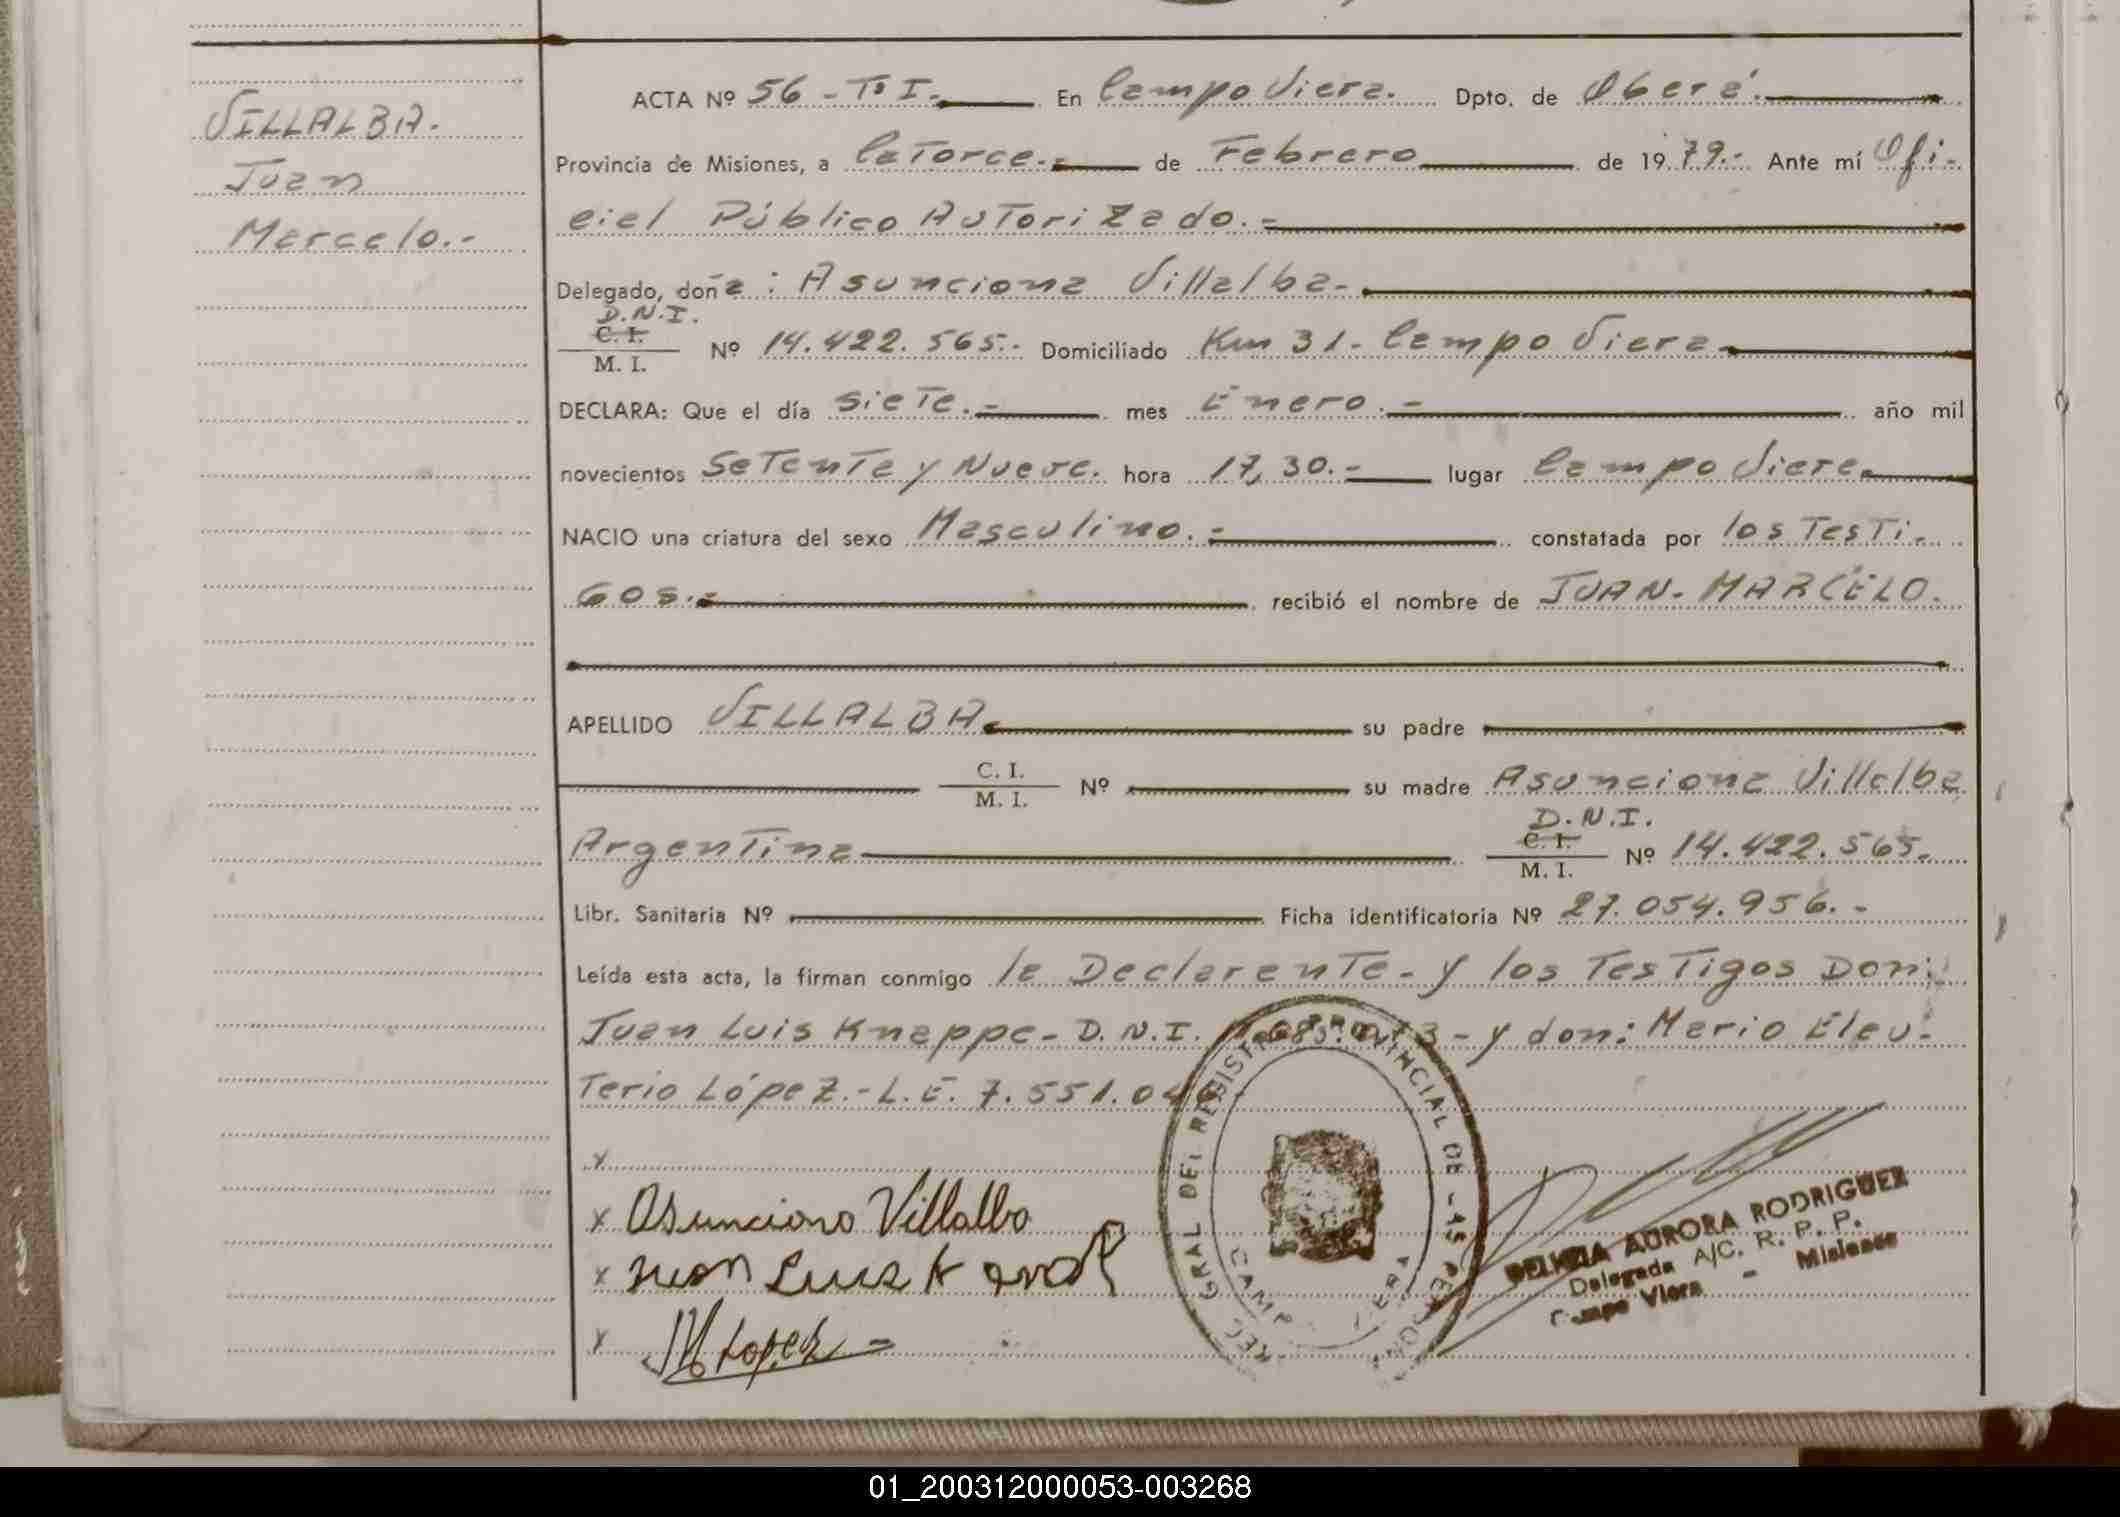 VILLALBA.
Juan
Marcelo.-
ACTA Nº 56 - Tº I.- En Campo Viera. Dpto. de Oberá.
Provincia de Misiones, a Catorce.- de Febrero de 1979.- Ante mí Ofi-
cial Público Autorizado.-
Delegado, doña: Asunciona Villalba.-
D.N.I.
C. I.
M. I. Nº 14.422.565.- Domiciliado Km 31- Campo Viera
DECLARA: Que el día siete.- mes Enero.- año mil
novecientos Setenta y Nueve. hora 17,30.- lugar Campo Viera
NACIO una criatura del sexo Masculino.- constatada por los Testi-
gos.- recibió el nombre de JUAN-MARCELO.
APELLIDO VILLALBA su padre
C. I.
M. I. Nº su madre Asunciona Villalba
D.N.I.
Argentina C. I.
M. I. Nº 14.422.565.
Libr. Sanitaria Nº Ficha identificatoria Nº 27.054.956.-
Leída esta acta, la firman conmigo la Declarante- y los Testigos Don:
Juan Luis Knappe- D.N.I. - y don: Mario Eleu-
Terio López.- L.E. 7.551.04
x
x Asunciona Villalba
x Juan Luis
x M Lopez
REG. GRAL. DEL REGISTRO PROVINCIAL DE LAS PERSONAS
CAMPO VIERA
AURORA RODRIGUEZ
Delegada A/C. R. P. P.
Campo Viera - Misiones
01_200312000053-003268